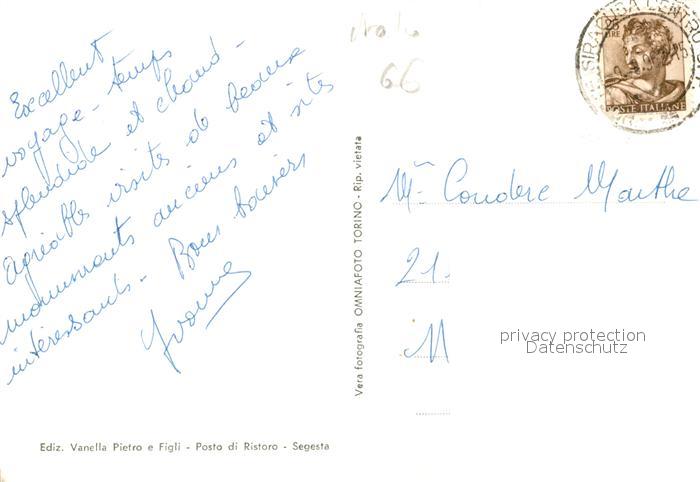 Excellent
voyage - temps
splendide et chaud -
agréable visites de beaux
monuments anciens et sites
intéressants - Bons baisers
Yvonne
Ediz. Vanella Pietro e Figli - Posto di Ristoro - Segesta
Vera fotografia OMNIAFOTO TORINO - Rip. vietata
italie
66
SIRACUSA CENTRO
POSTE ITALIANE
Mme Couderc Marthe
21.
M
privacy protection
Datenschutz